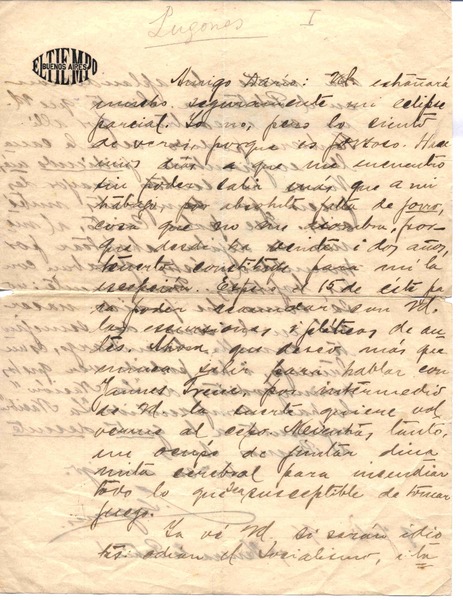 Lugones
I
EL TIEMPO
BUENOS AIRES
Amigo Darío: Ud. estrañará
mucho seguramente mi eclipse
parcial. Yo no, pero lo siento
de veras, porque es forzoso. Hace
unos días a que me encuentro
sin poder salir mas que a mi
trabajo, por absoluta falta de forro,
cosa que no me asombra, por
que desde ha veinte i dos años,
constituye para mí la
Espero a 15 de este pa
ra poder reanudar con Ud.
las escursiones i pláticas de an
tes. Ahora que deseo más que
nunca salir para hablar con
Jaimes Freire, por intermedio
de Ud. la suerte quiere vol
verme al cepo. Mientras, tanto,
me ocupo de juntar dina
mita cerebral para incendiar
todo lo que sea susceptible de tomar
fuego.
Ya vé Ud. si serán idio
tas odian el Socialismo, i la